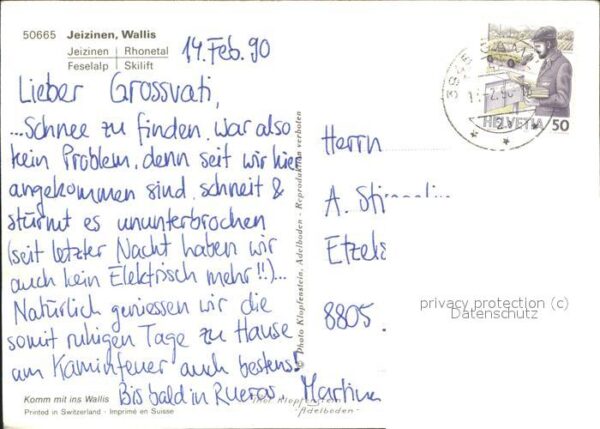 50665 Jeizinen, Wallis
Jeizinen Rhonetal
Feselalp Skilift
14. Feb. 90
Lieber Grossvati,
...Schnee zu finden, war also
kein Problem, denn seit wir hier
angekommen sind, schneit &
stürmt es ununterbrochen
(seit letzter Nacht haben wir
auch kein Elektrisch mehr!!)...
Natürlich geniessen wir die
somit ruhigen Tage zu Hause
am Kaminfeuer auch bestens!
Bis bald in Rueras, Martina
Komm mit ins Wallis
Printed in Switzerland - Imprimé en Suisse
© Photo Klopfenstein, Adelboden - Reproduktion verboten
Klopfenstein
-Adelboden-
HELVETIA 50
Herrn
A.
8805
privacy protection (c)
Datenschutz